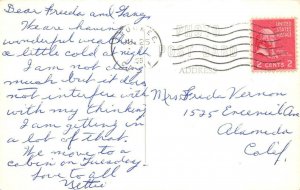 Dear Freda and Gang,
We are having
wonderful weather
a little cold at night
I am not doing
much but it does
not interfere with
with my thinking
I am getting in
a lot of that.
We move to a
cabin on Tuesday.
Love to all
Nettie
ADDRESS
UNITED STATES POSTAGE
2 CENTS 2
Mrs. Freda Vernon
1525 Encinal Ave
Alameda
Calif.